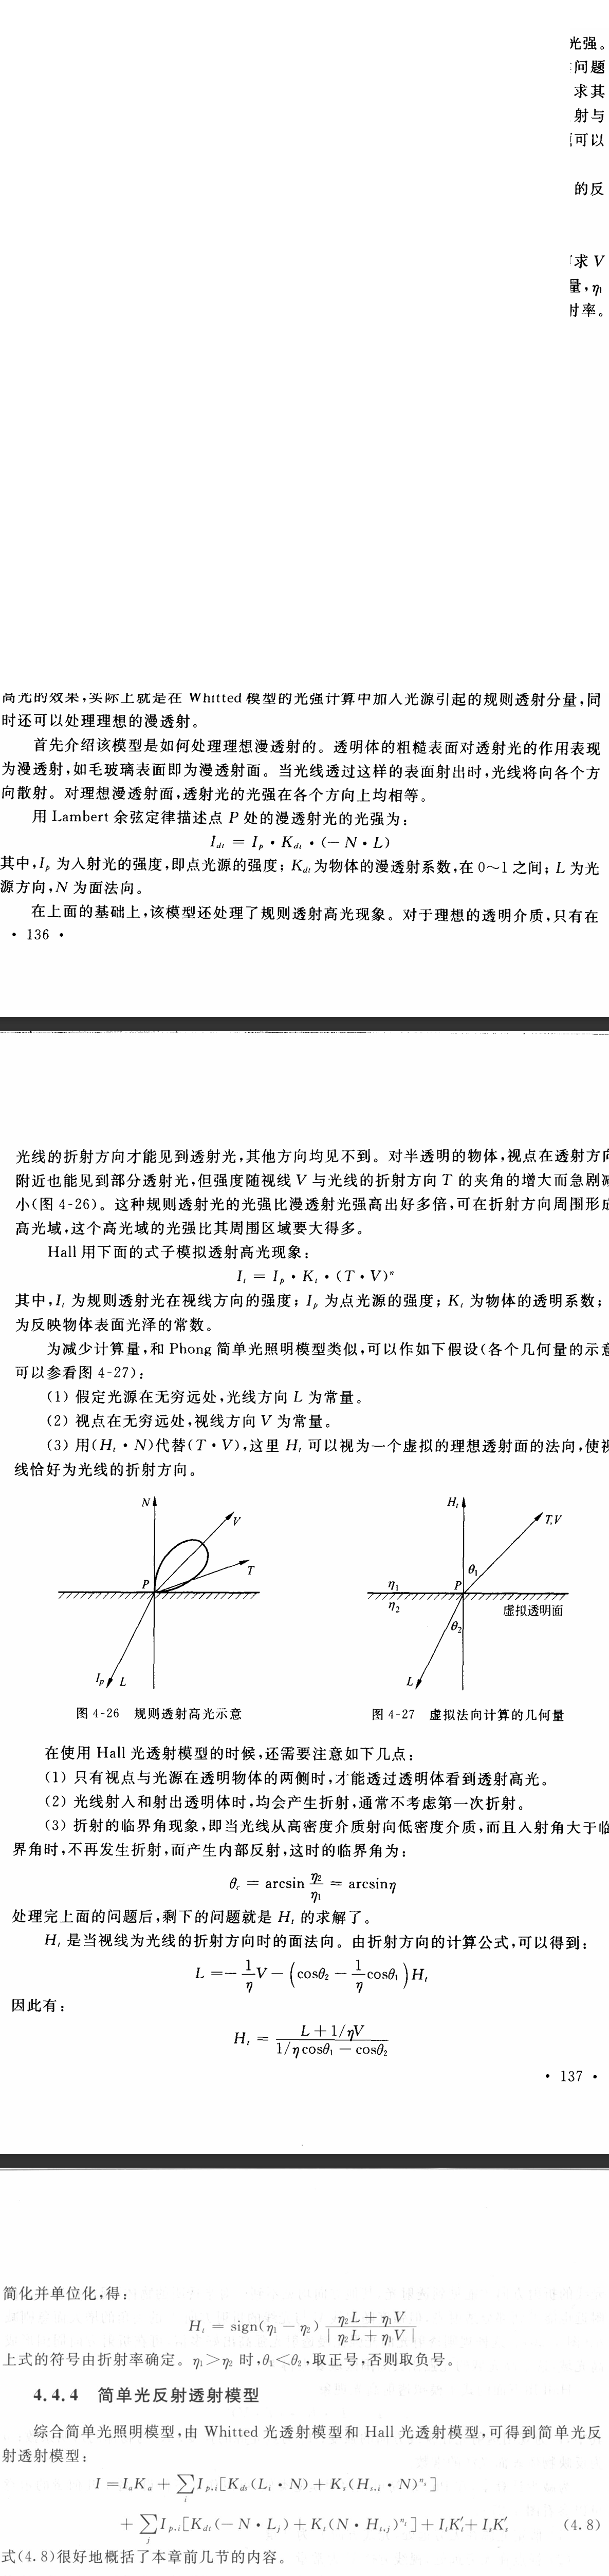 光强。
问题
求其
射与
可以
的反
求 V
量,η₁
射率。
高光的效果,实际上就是在 Whitted 模型的光强计算中加入光源引起的规则透射分量,同
时还可以处理理想的漫透射。
首先介绍该模型是如何处理理想漫透射的。透明体的粗糙表面对透射光的作用表现
为漫透射,如毛玻璃表面即为漫透射面。当光线透过这样的表面射出时,光线将向各个方
向散射。对理想漫透射面,透射光的光强在各个方向上均相等。
用 Lambert 余弦定律描述点 P 处的漫透射光的光强为:
I_dt = I_p · K_dt · (− N · L)
其中,I_p 为入射光的强度,即点光源的强度; K_dt为物体的漫透射系数,在 0～1 之间; L 为光
源方向,N 为面法向。
在上面的基础上,该模型还处理了规则透射高光现象。对于理想的透明介质,只有在
· 136 ·
光线的折射方向才能见到透射光,其他方向均见不到。对半透明的物体,视点在透射方向
附近也能见到部分透射光,但强度随视线 V 与光线的折射方向 T 的夹角的增大而急剧减
小(图 4-26)。这种规则透射光的光强比漫透射光强高出好多倍,可在折射方向周围形成
高光域,这个高光域的光强比其周围区域要大得多。
Hall 用下面的式子模拟透射高光现象:
I_t = I_p · K_t · (T · V)ⁿ
其中,I_t 为规则透射光在视线方向的强度; I_p 为点光源的强度; K_t 为物体的透明系数;
为反映物体表面光泽的常数。
为减少计算量,和 Phong 简单光照明模型类似,可以作如下假设(各个几何量的示意
可以参看图 4-27):
(1) 假定光源在无穷远处,光线方向 L 为常量。
(2) 视点在无穷远处,视线方向 V 为常量。
(3) 用(H_t · N)代替(T · V),这里 H_t 可以视为一个虚拟的理想透射面的法向,使视
线恰好为光线的折射方向。
N V P T I_p L
H_t T,V θ₁ η₁ P η₂ θ₂ 虚拟透明面 L
图 4-26 规则透射高光示意
图 4-27 虚拟法向计算的几何量
在使用 Hall 光透射模型的时候,还需要注意如下几点:
(1) 只有视点与光源在透明物体的两侧时,才能透过透明体看到透射高光。
(2) 光线射入和射出透明体时,均会产生折射,通常不考虑第一次折射。
(3) 折射的临界角现象,即当光线从高密度介质射向低密度介质,而且入射角大于临
界角时,不再发生折射,而产生内部反射,这时的临界角为:
θ_c = arcsin η₂/η₁ = arcsinη
处理完上面的问题后,剩下的问题就是 H_t 的求解了。
H_t 是当视线为光线的折射方向时的面法向。由折射方向的计算公式,可以得到:
L = − 1/η V − (cosθ₂ − 1/η cosθ₁) H_t
因此有:
H_t = (L + 1/ηV)/(1/ηcosθ₁ − cosθ₂)
· 137 ·
简化并单位化,得:
H_t = sign(η₁ − η₂) (η₂L + η₁V)/|η₂L + η₁V|
上式的符号由折射率确定。η₁>η₂ 时,θ₁<θ₂,取正号,否则取负号。
4.4.4 简单光反射透射模型
综合简单光照明模型,由 Whitted 光透射模型和 Hall 光透射模型,可得到简单光反
射透射模型:
I = I_aK_a + ∑_i I_p,i[K_ds(L_i · N) + K_s(H_s,i · N)^n_s]
+ ∑_j I_p,i[K_dt(− N · L_j) + K_t(N · H_t,j)^n_t] + I_tK′_t + I_sK′_s (4.8)
式(4.8)很好地概括了本章前几节的内容。